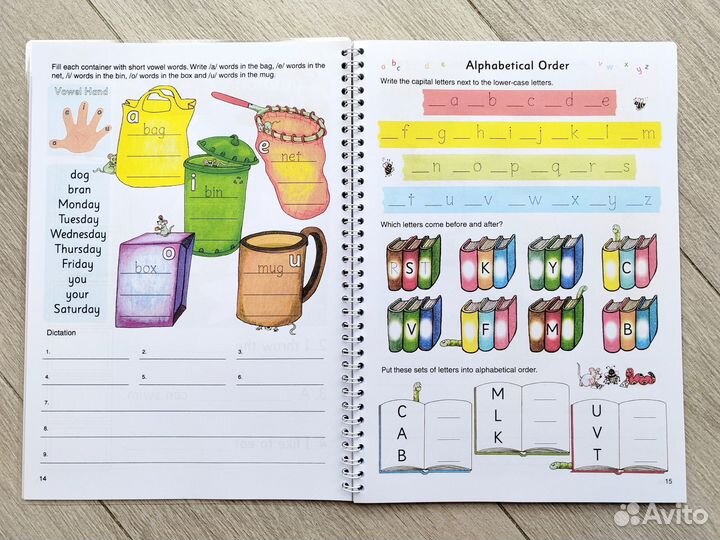 Fill each container with short vowel words. Write /a/ words in the bag, /e/ words in the
net, /i/ words in the bin, /o/ words in the box and /u/ words in the mug.
Vowel Hand
a
e
i
o
u
a
bag
e
net
i
bin
o
box
u
mug
dog
bran
Monday
Tuesday
Wednesday
Thursday
Friday
you
your
Saturday
Dictation
1. 2. 3.
4. 5. 6.
7.
8.
9.
14
a b c d e Alphabetical Order v w x y z
Write the capital letters next to the lower-case letters.
_ a _ b _ c _ d _ e
_ f _ g _ h _ i _ j _ k _ l _ m
_ n _ o _ p _ q _ r _ s
_ t _ u _ v _ w _ x _ y _ z
Which letters come before and after?
R S T K Y C
V F M B
Put these sets of letters into alphabetical order.
C
A
B
M
L
K
U
V
T
15
Avito